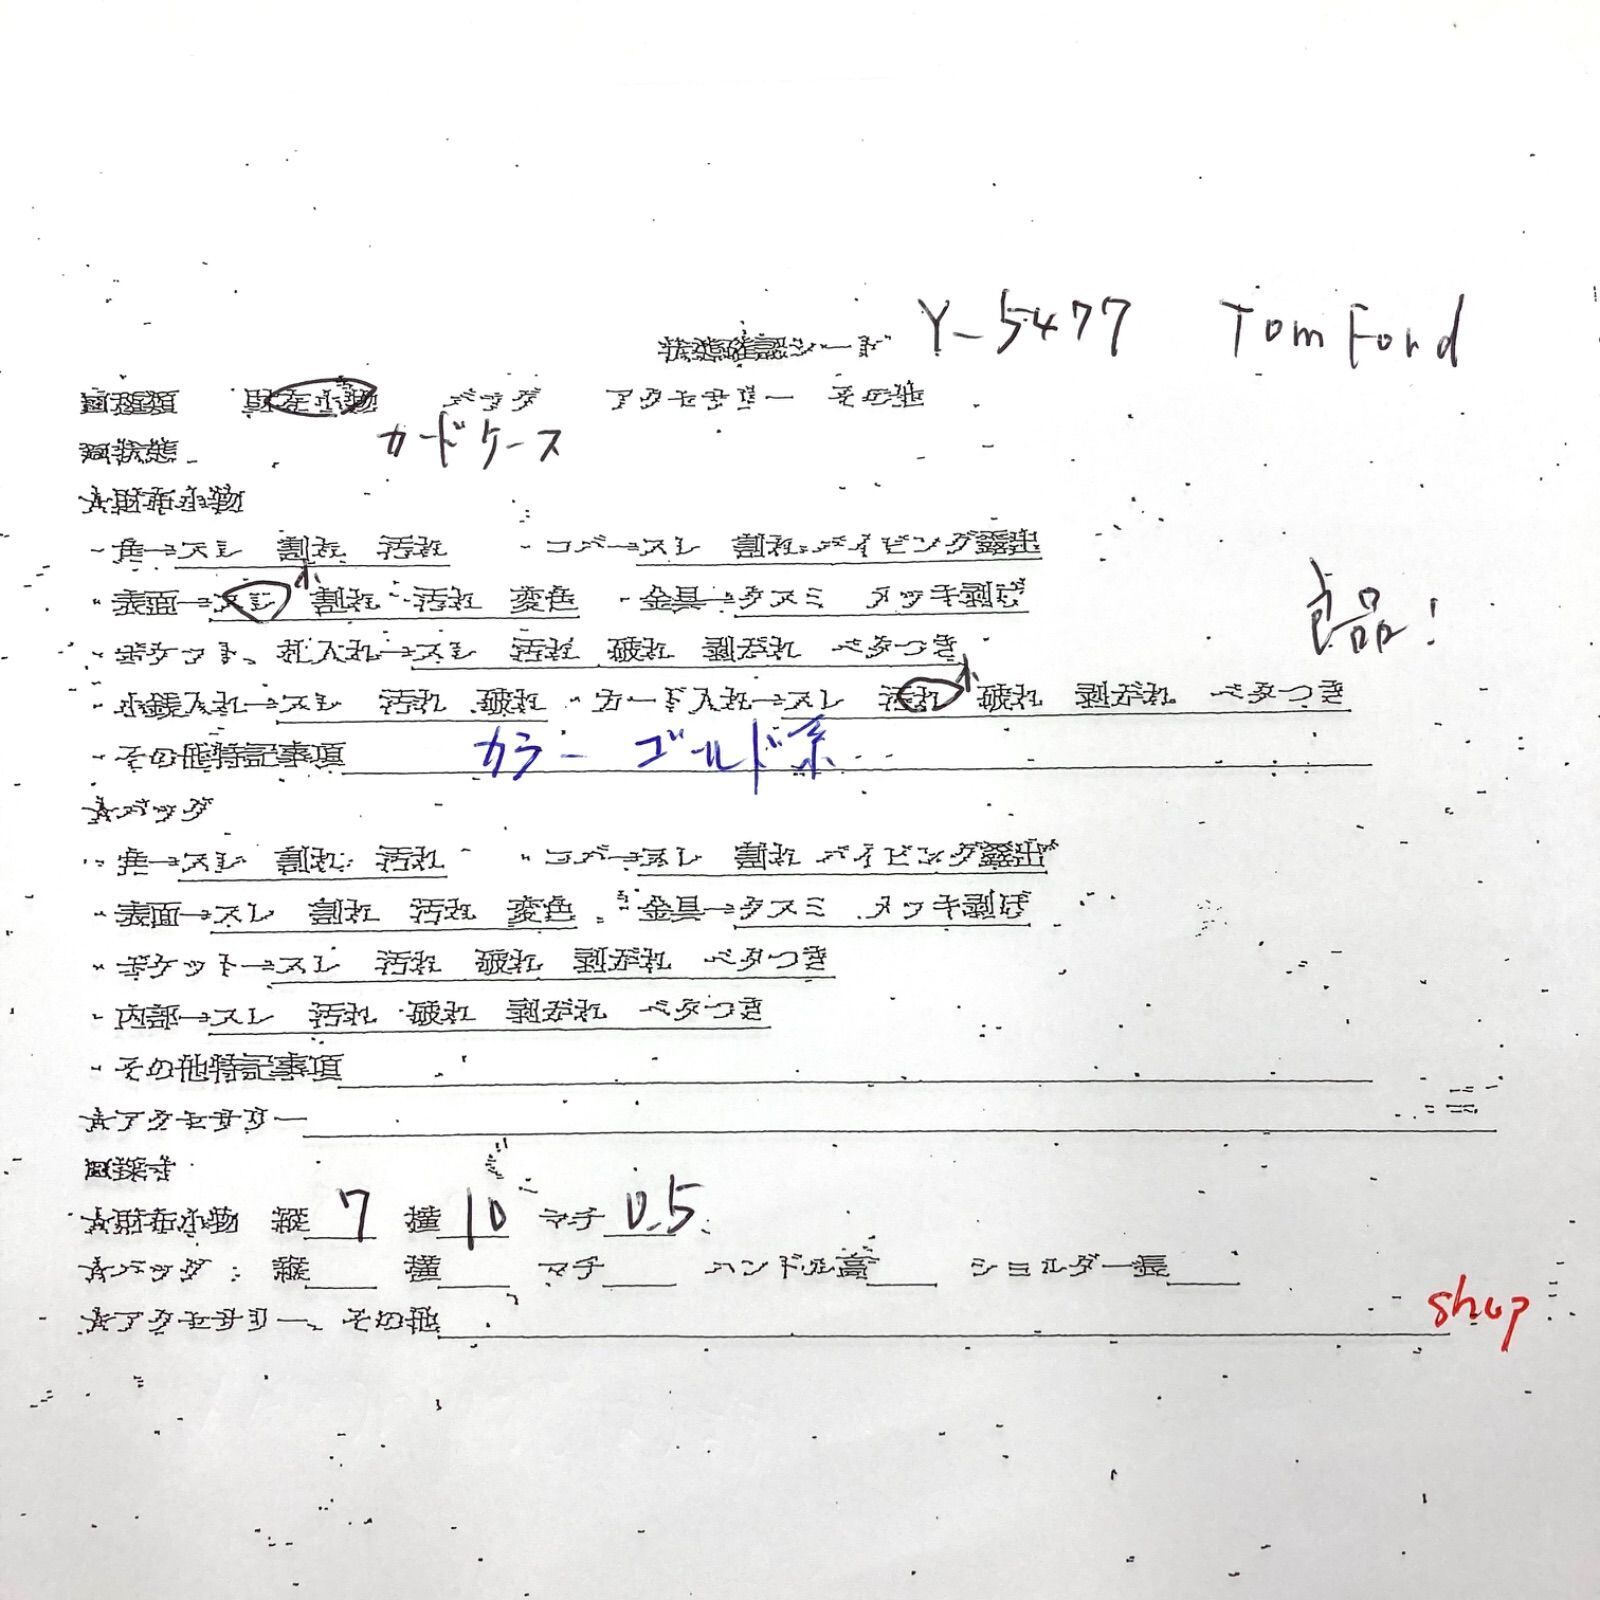 状態確認シート Y-5477 Tom Ford
■種類 財布小物 バッグ アクセサリー その他
■状態 カードケース
★財布小物
・角→スレ 割れ 汚れ ・コバ→スレ 割れ パイピング露出
・表面→スレ 小 割れ 汚れ 変色 ・金具→クスミ メッキ剥げ
良品!
・ポケット、札入れ→スレ 汚れ 破れ 剥がれ ベタつき
・小銭入れ→スレ 汚れ 破れ ・カード入れ→スレ 汚れ 小 破れ 剥がれ ベタつき
・その他特記事項 カラー ゴールド系
★バッグ
・角→スレ 割れ 汚れ ・コバ→スレ 割れ パイピング露出
・表面→スレ 割れ 汚れ 変色 ・金具→クスミ メッキ剥げ
・ポケット→スレ 汚れ 破れ 剥がれ ベタつき
・内部→スレ 汚れ 破れ 剥がれ ベタつき
・その他特記事項
★アクセサリー
■採寸
★財布小物 縦 7 横 10 マチ 0.5
★バッグ 縦 横 マチ ハンドル高 ショルダー長
★アクセサリー、その他
shop